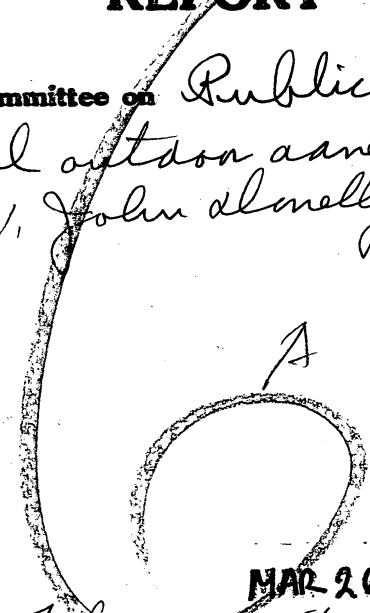 REPORT
mmittee on Public
l outdoor adve
John Donelly
A
MAR 26